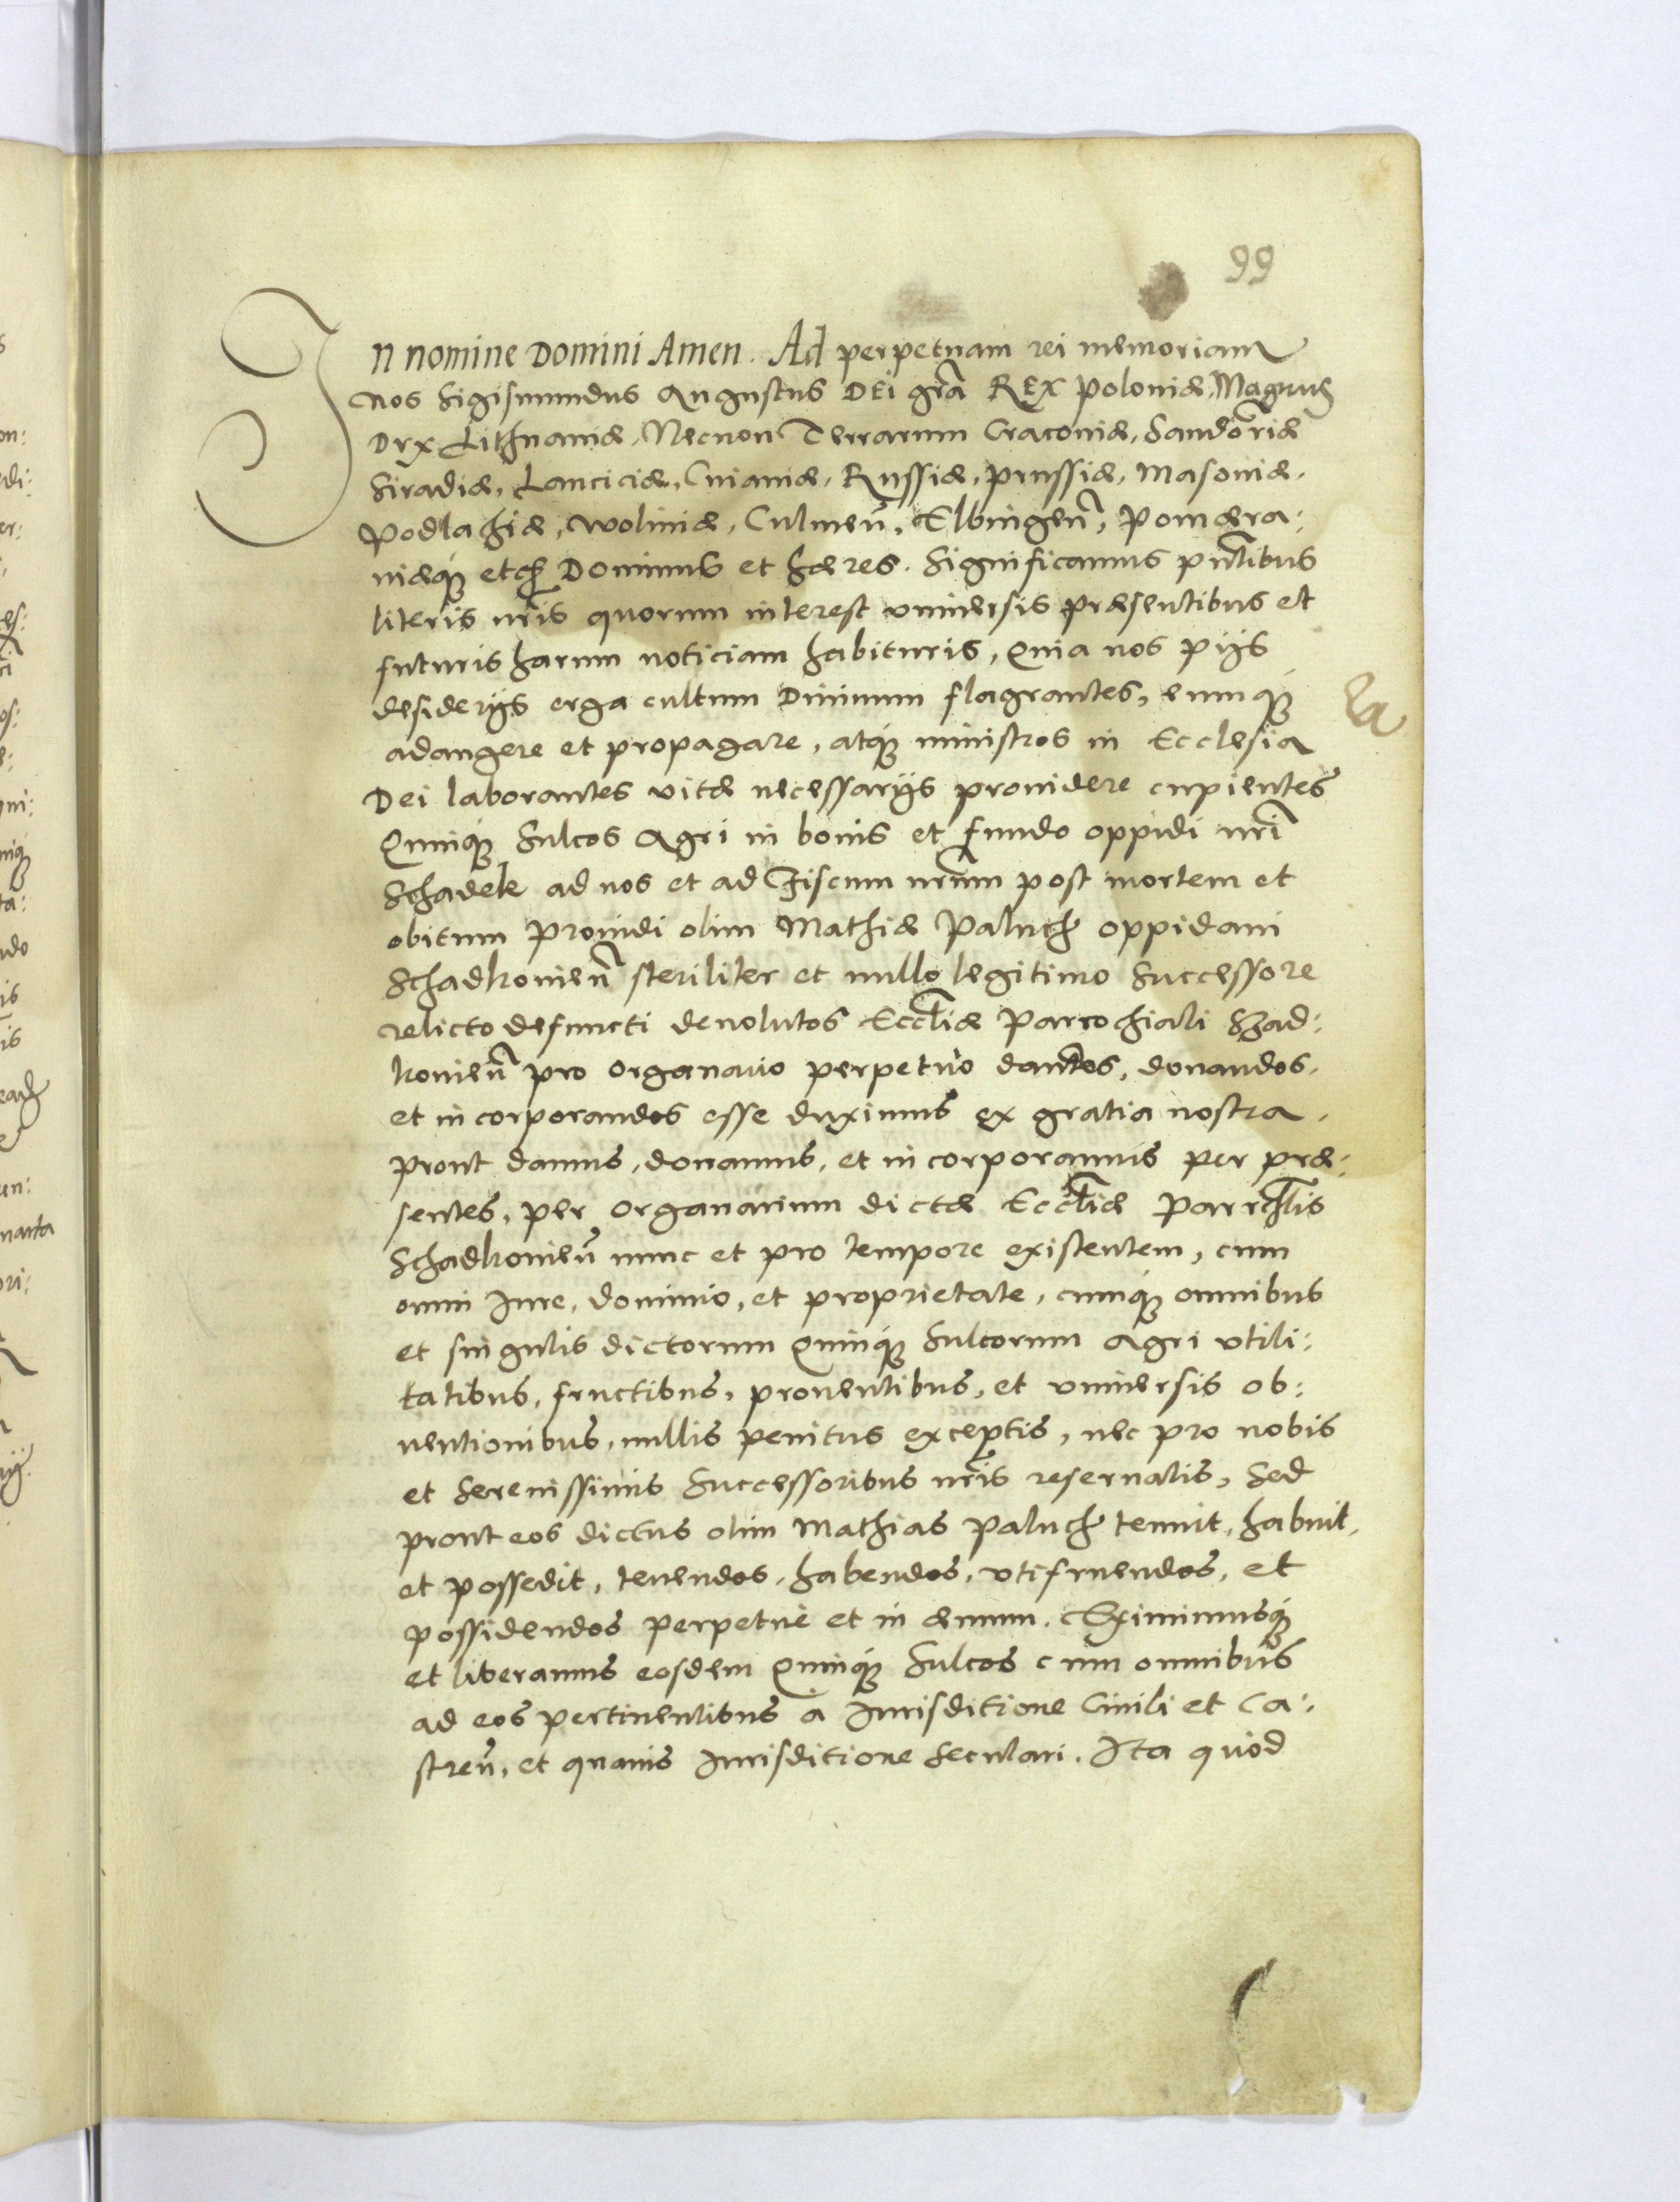 99
In nomine Domini Amen. Ad perpetuam rei memoriam
Nos Sigismundus Augustus DEi gr̃a REX Poloniæ, Magnus
Dux Lithuaniæ, Necnon Terrarum Cracoviæ, Sandom̃riæ
Siradiæ, Lanciciæ, Cuiaviæ, Russiæ, Prussiæ, Masoviæ,
Podlachiæ, Woliniæ, Culmeñ, Elbingeñ, Pomæra:
niæq́ꝫ etc̃ Dominus et hæres. Significamus pñtibus
literis nr̃is quorum interest vniuersis præsentibus et
futuris harum noticiam habituris, Quia nos pijs
desiderijs erga cultum Diuinum flagrantes, eumq́ꝫ
adaugere et propagare, atq́ꝫ ministros in Ecclesia
Dei laborantes vitæ necessarijs prouidere cupientes
Quinq́ꝫ Sulcos Agri in bonis et fundo oppidi nr̃i
Schadek ad nos et ad Fiscum nr̃um post mortem et
obitum Prouidi olim Mathiæ Paluch oppidani
Schadkouieñ steriliter et nullo legitimo Successore
relicto defuncti deuolutos Eccl̃iæ Parrochiali Szad:
kouieñ pro organario perpetuò dandos, donandos,
et incorporandos esse duximus ex gratia nostra,
prout damus, donamus, et incorporamus per præ:
sentes, per organarium dictæ Eccl̃iæ Parrchl̃is
Schadkouieñ nunc et pro tempore existentem, cum
omni Iure, dominio, et proprietate, cumq́ꝫ omnibus
et singulis dictorum Quinq́ꝫ Sulcorum Agri vtili:
tatibus, fructibus, prouentibus, et vniuersis ob:
uentionibus, nullis penitus exceptis, nec pro nobis
et Serenissimis Successoribus nr̃is reseruatis, Sed
prout eos dictus olim Mathias Paluch tenuit, habuit,
et possedit, tenendos, habendos, vtifruendos, et
possidendos perpetuè et in æuum. Eximimusq́ꝫ
et liberamus eosdem Quinq́ꝫ Sulcos cum omnibus
ad eos pertinentibus à Iurisditione Ciuili et Ca:
streñ, et quauis Iurisditione seculari. Ita quod